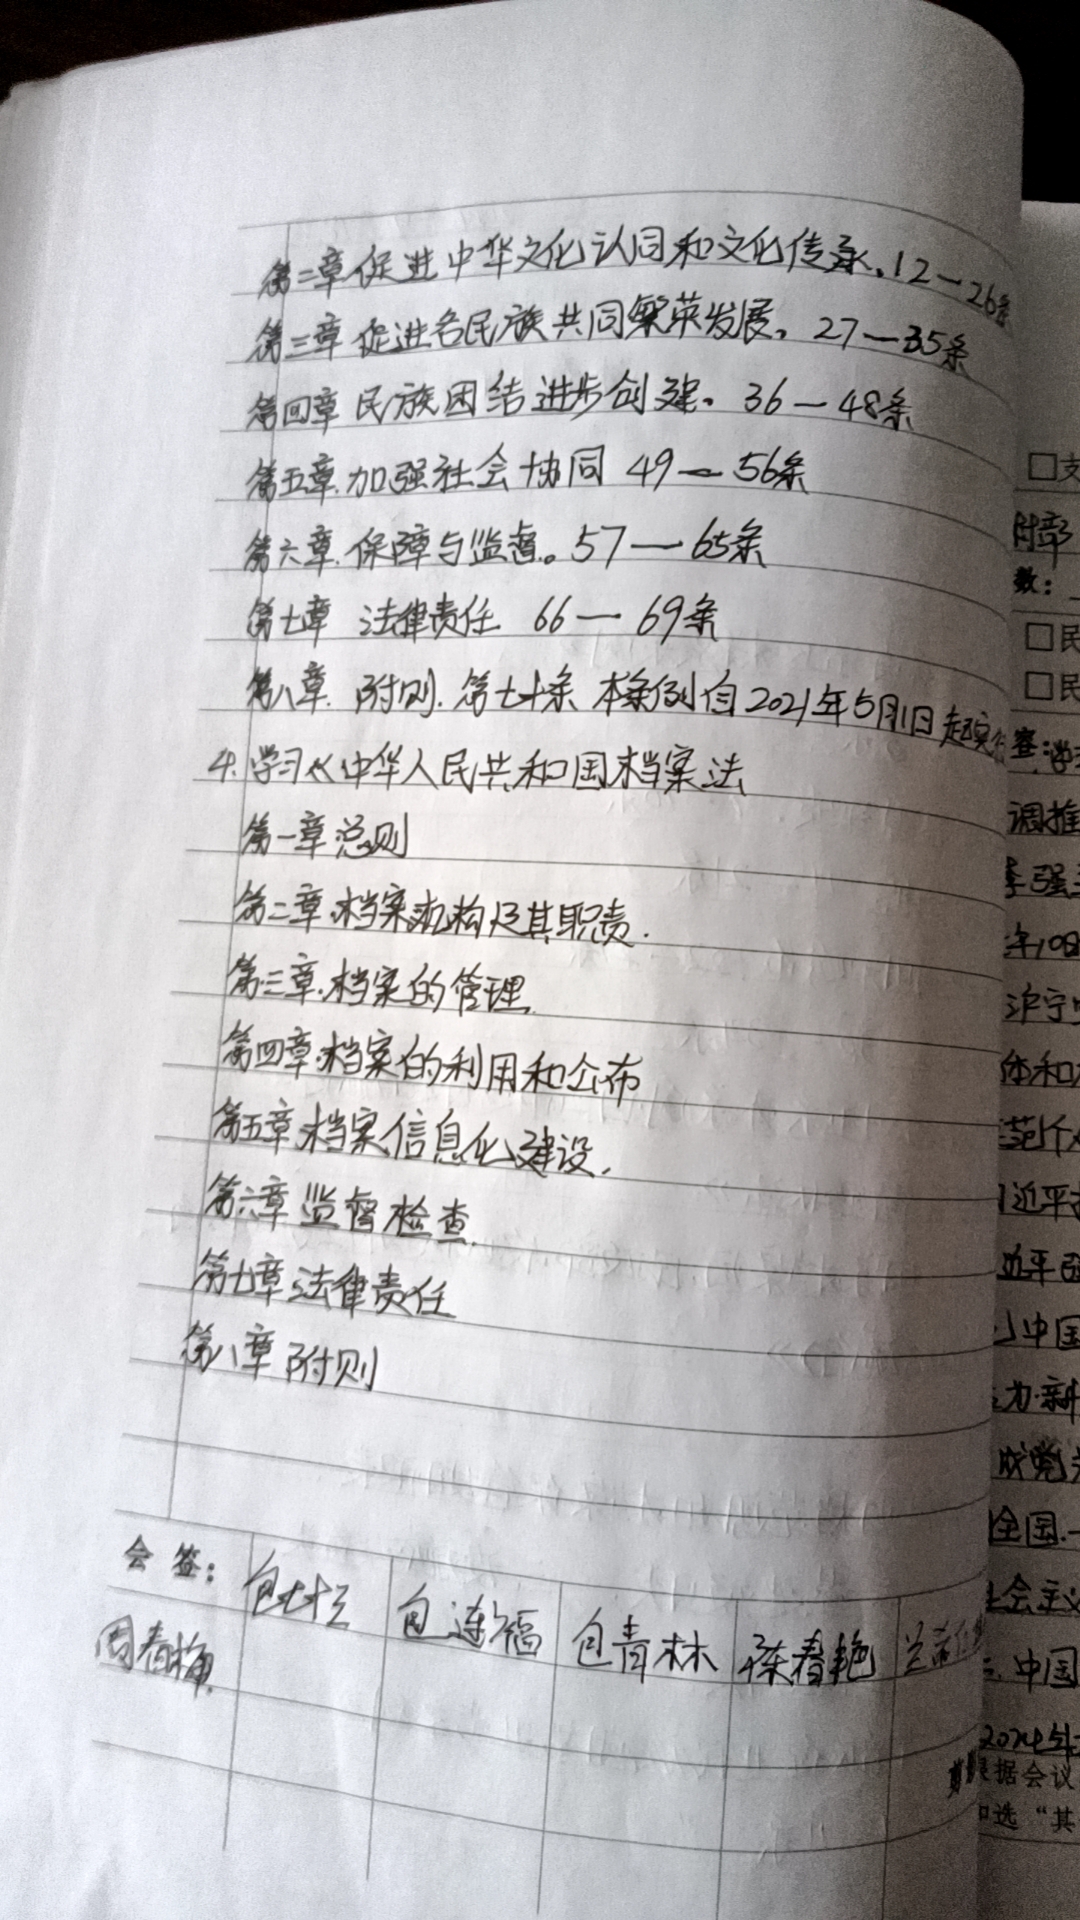 第二章促进中华文化认同和文化传承。12—26条
第三章促进各民族共同繁荣发展。27—35条
第四章民族团结进步创建。36—48条
第五章.加强社会协同 49—56条
第六章.保障与监督。57—65条
第七章 法律责任 66—69条
第八章. 附则.第七十条 本条例自2021年5月1日起实
4.学习《中华人民共和国档案法
第一章总则
第二章.档案机构及其职责.
第三章.档案的管理.
第四章.档案的利用和公布
第五章.档案信息化建设.
第六章监督检查.
第七章法律责任
第八章附则
会 签: 包七十三 包连福 包青林 陈春艳
周春梅
支
附章
数:
民
民
调推
李强
年10日
沪宁
体和
范个
近平
近平
中国
为新
成党
全国.一
社会主义
中国
2024年
根据会议
勾选“其